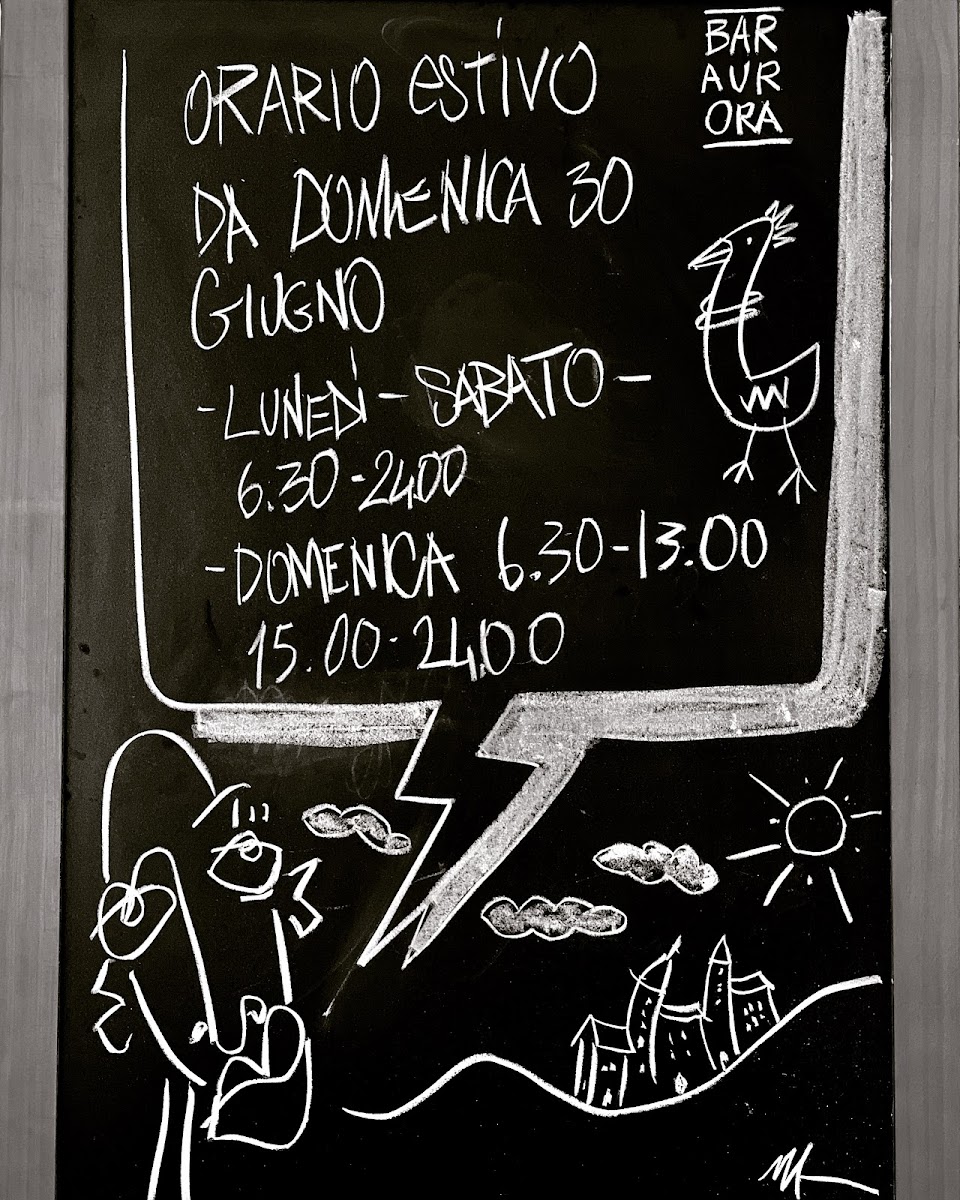 BAR
AUR
ORA
ORARIO ESTIVO
DA DOMENICA 30
GIUGNO
-LUNEDÌ - SABATO -
6.30-24.00
-DOMENICA 6.30-13.00
15.00-24.00